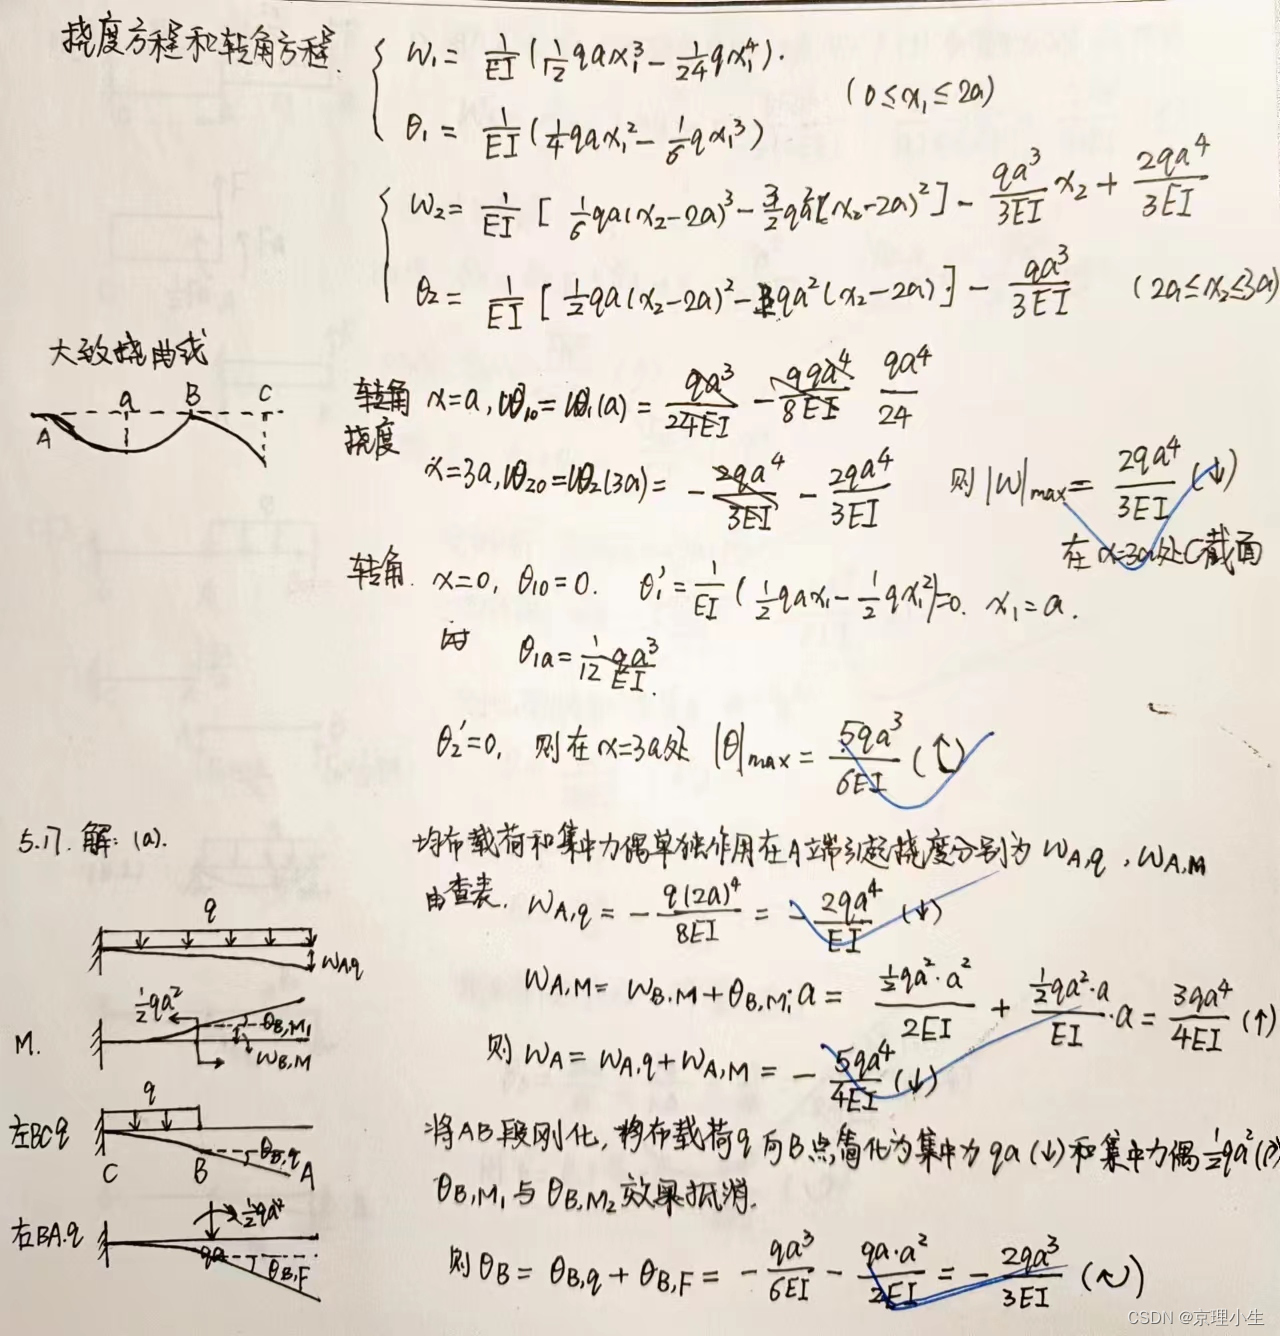 挠度方程和转角方程.
w₁= 1/EI (1/12 qax₁³ - 1/24 qx₁⁴).
(0≤x₁≤2a)
θ₁= 1/EI (1/4 qax₁² - 1/6 qx₁³)
w₂= 1/EI [ 1/6 qa(x₂-2a)³ - (x₂-2a)²] - qa³/3EI x₂ + 2qa⁴/3EI
θ₂= 1/EI [ 1/2 qa(x₂-2a)² - qa²(x₂-2a)] - qa³/3EI (2a≤x₂≤3a)
大致挠曲线
A a B C
转角 x=a, w₁₀=w₁(a)= qa³/24EI - qa⁴/8EI qa⁴/24
挠度
x=3a, w₂₀=w₂(3a)= - 2qa⁴/3EI - 2qa⁴/3EI 则|w|max= 2qa⁴/3EI (↓)
在x=3a处C截面
转角. x=0, θ₁₀=0. θ₁'= 1/EI ( 1/2 qax₁ - 1/2 qx₁²)=0. x₁=a.
时 θ₁a= 1/12 qa³/EI.
θ₂'=0, 则在x=3a处 |θ|max= 5qa³/6EI
5.17. 解: (a).
均布载荷和集中力偶单独作用在A端引起挠度分别为 wA,q , wA,M
由查表. wA,q = - q(2a)⁴/8EI = - 2qa⁴/EI (↓)
q
wA,q
wA,M = wB,M + θB,M₁·a = 1/2 qa²·a²/2EI + 1/2 qa²·a/EI ·a = 3qa⁴/4EI (↑)
M.
1/2 qa²
θB,M₁
wB,M
则 wA = wA,q + wA,M = - 5qa⁴/4EI (↓)
左BC q
q
θB,q
C B A
将AB段刚化, 将布载荷q向B点简化为集中力qa(↓)和集中力偶 1/2 qa²
θB,M₁与θB,M₂效果抵消.
右BA.q
1/2 qa²
qa
θB,F
则 θB = θB,q + θB,F = - qa³/6EI - qa·a²/2EI = - 2qa³/3EI
CSDN @京理小生